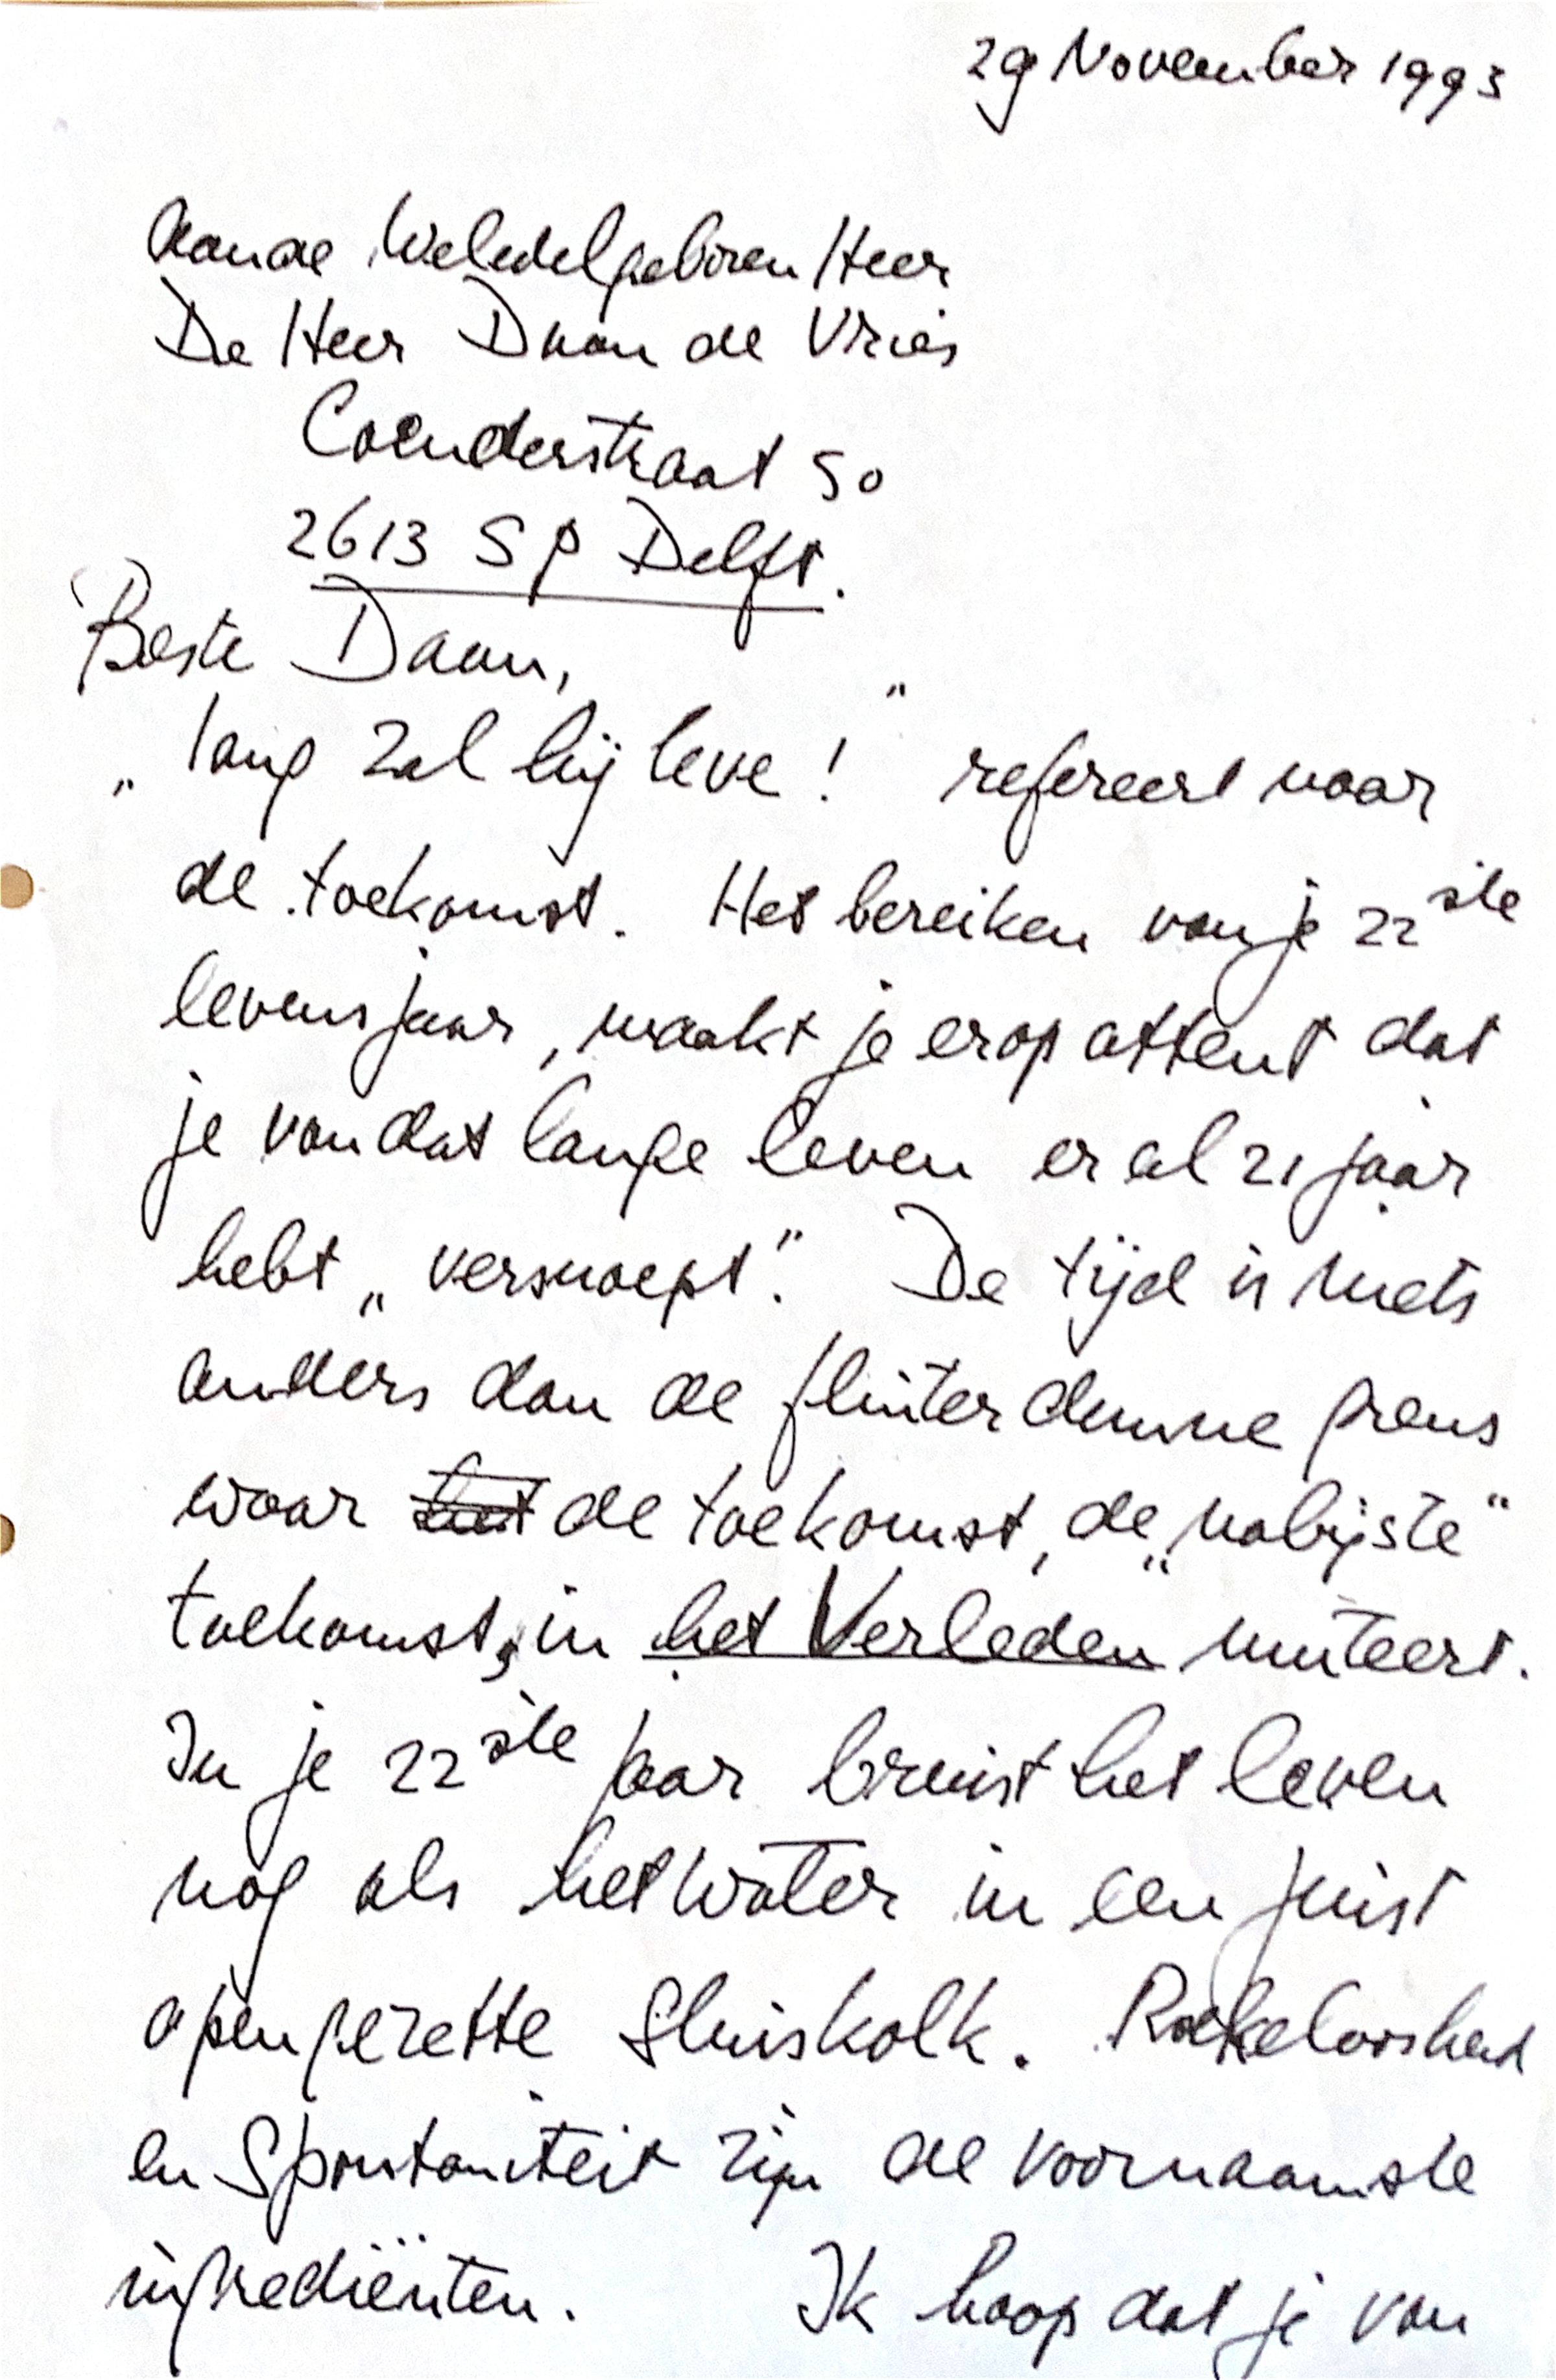 29 November 1993
Aan de Weledelgeboren Heer
De Heer Daan de Vries
Coenderstraat 50
2613 SP Delft.
Beste Daan,
„lang zal hij leve!" refereert naar
de toekomst. Het bereiken van je 22ste
levensjaar, maakt je erop attent dat
je van dat lange leven er al 21 jaar
hebt „versnoept". De tijd is niets
anders dan de flinterdunne grens
waar het de toekomst, de „nabijste"
toekomst, in het Verleden muteert.
In je 22ste jaar bruist het leven
nog als het water in een juist
opengezette Sluiskolk. Roekeloosheid
en Spontaniteit zijn de voornaamste
ingrediënten. Ik hoop dat je van